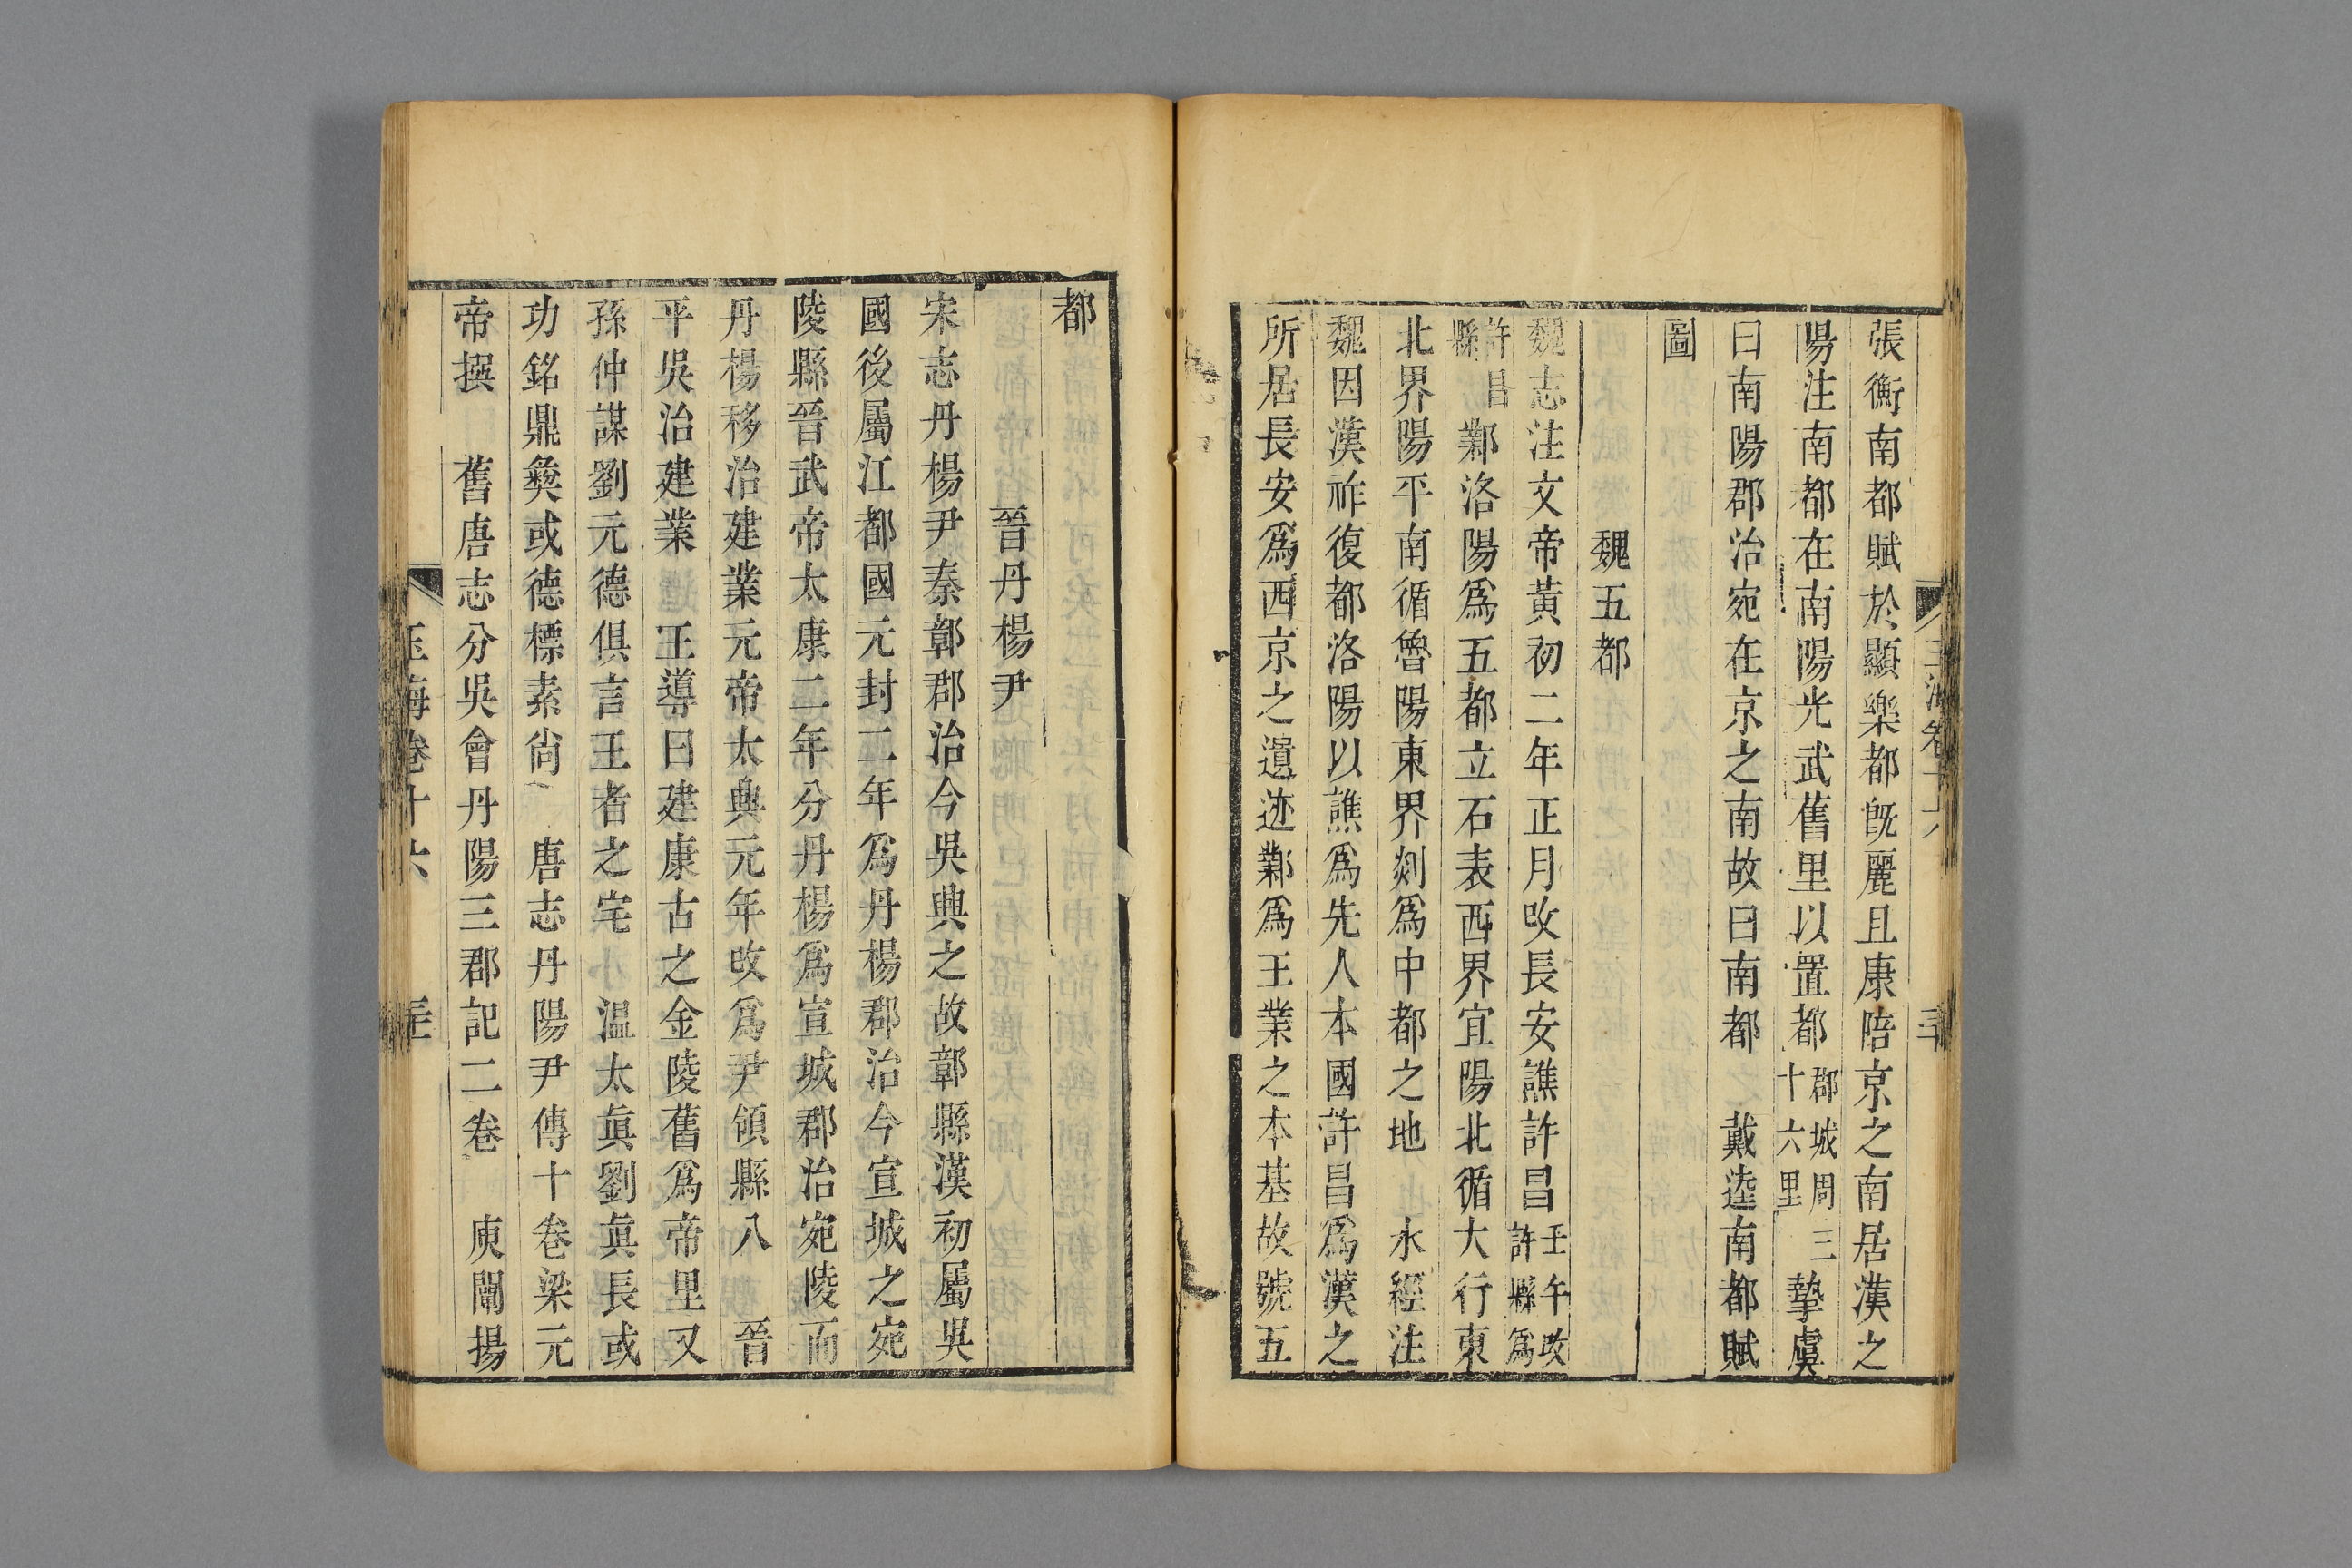 張衡南都賦於顯樂都旣麗且康陪京之南居漢之
陽注南都在南陽光武舊里以置都郡城周三十六里摯虞
曰南陽郡治宛在京之南故曰南都 戴逵南都賦
圖
魏五都
魏志注文帝黃初二年正月改長安譙許昌壬午改許縣爲
許昌縣鄴洛陽爲五都立石表西界宜陽北循大行東
北界陽平南循魯陽東界剡爲中都之地 水經注
魏因漢祚復都洛陽以譙爲先人本國許昌爲漢之
所居長安爲西京之遺迹鄴爲王業之本基故號五
都
晉丹楊尹
宋志丹楊尹秦鄣郡治今吳興之故鄣縣漢初屬吳
國後屬江都國元封二年爲丹楊郡治今宣城之宛
陵縣晉武帝太康二年分丹楊爲宣城郡治宛陵而
丹楊移治建業元帝太興元年改爲尹領縣八 晉
平吳治建業 王導曰建康古之金陵舊爲帝里又
孫仲謀劉元德俱言王者之宅 溫太眞劉眞長或
功銘鼎彝或德標素尙 唐志丹陽尹傳十卷梁元
帝撰 舊唐志分吳會丹陽三郡記二卷 庾闡揚
玉海卷十六